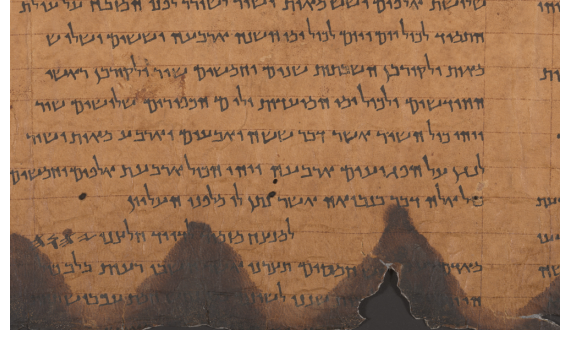 שלושת אלפים ושש מאות ושיר לשורר לפני המזבח על עולת
התמיד לכול יום ויום לכול ימי השנה ארבעה וששים ושלוש
מאות ולקורבן השבתות שנים וחמשים שיר ולקורבן ראשי
החודשים ולכול ימי המועדות ולים הכפורים שלושים שיר
ויהי כול השיר אשר דבר ששה ואבעים וארבע מאות ושיר
לנגן על הפגועים ארבעה ויהי הכול ארבעת אלפים וחמשים
כול אלה דבר בנבואה אשר נתן לו מלפני העליון
למנצח מזמור לדויד חלצני 𐤉𐤄𐤅𐤄
חמסים תנצרני חשבו רעות בלב